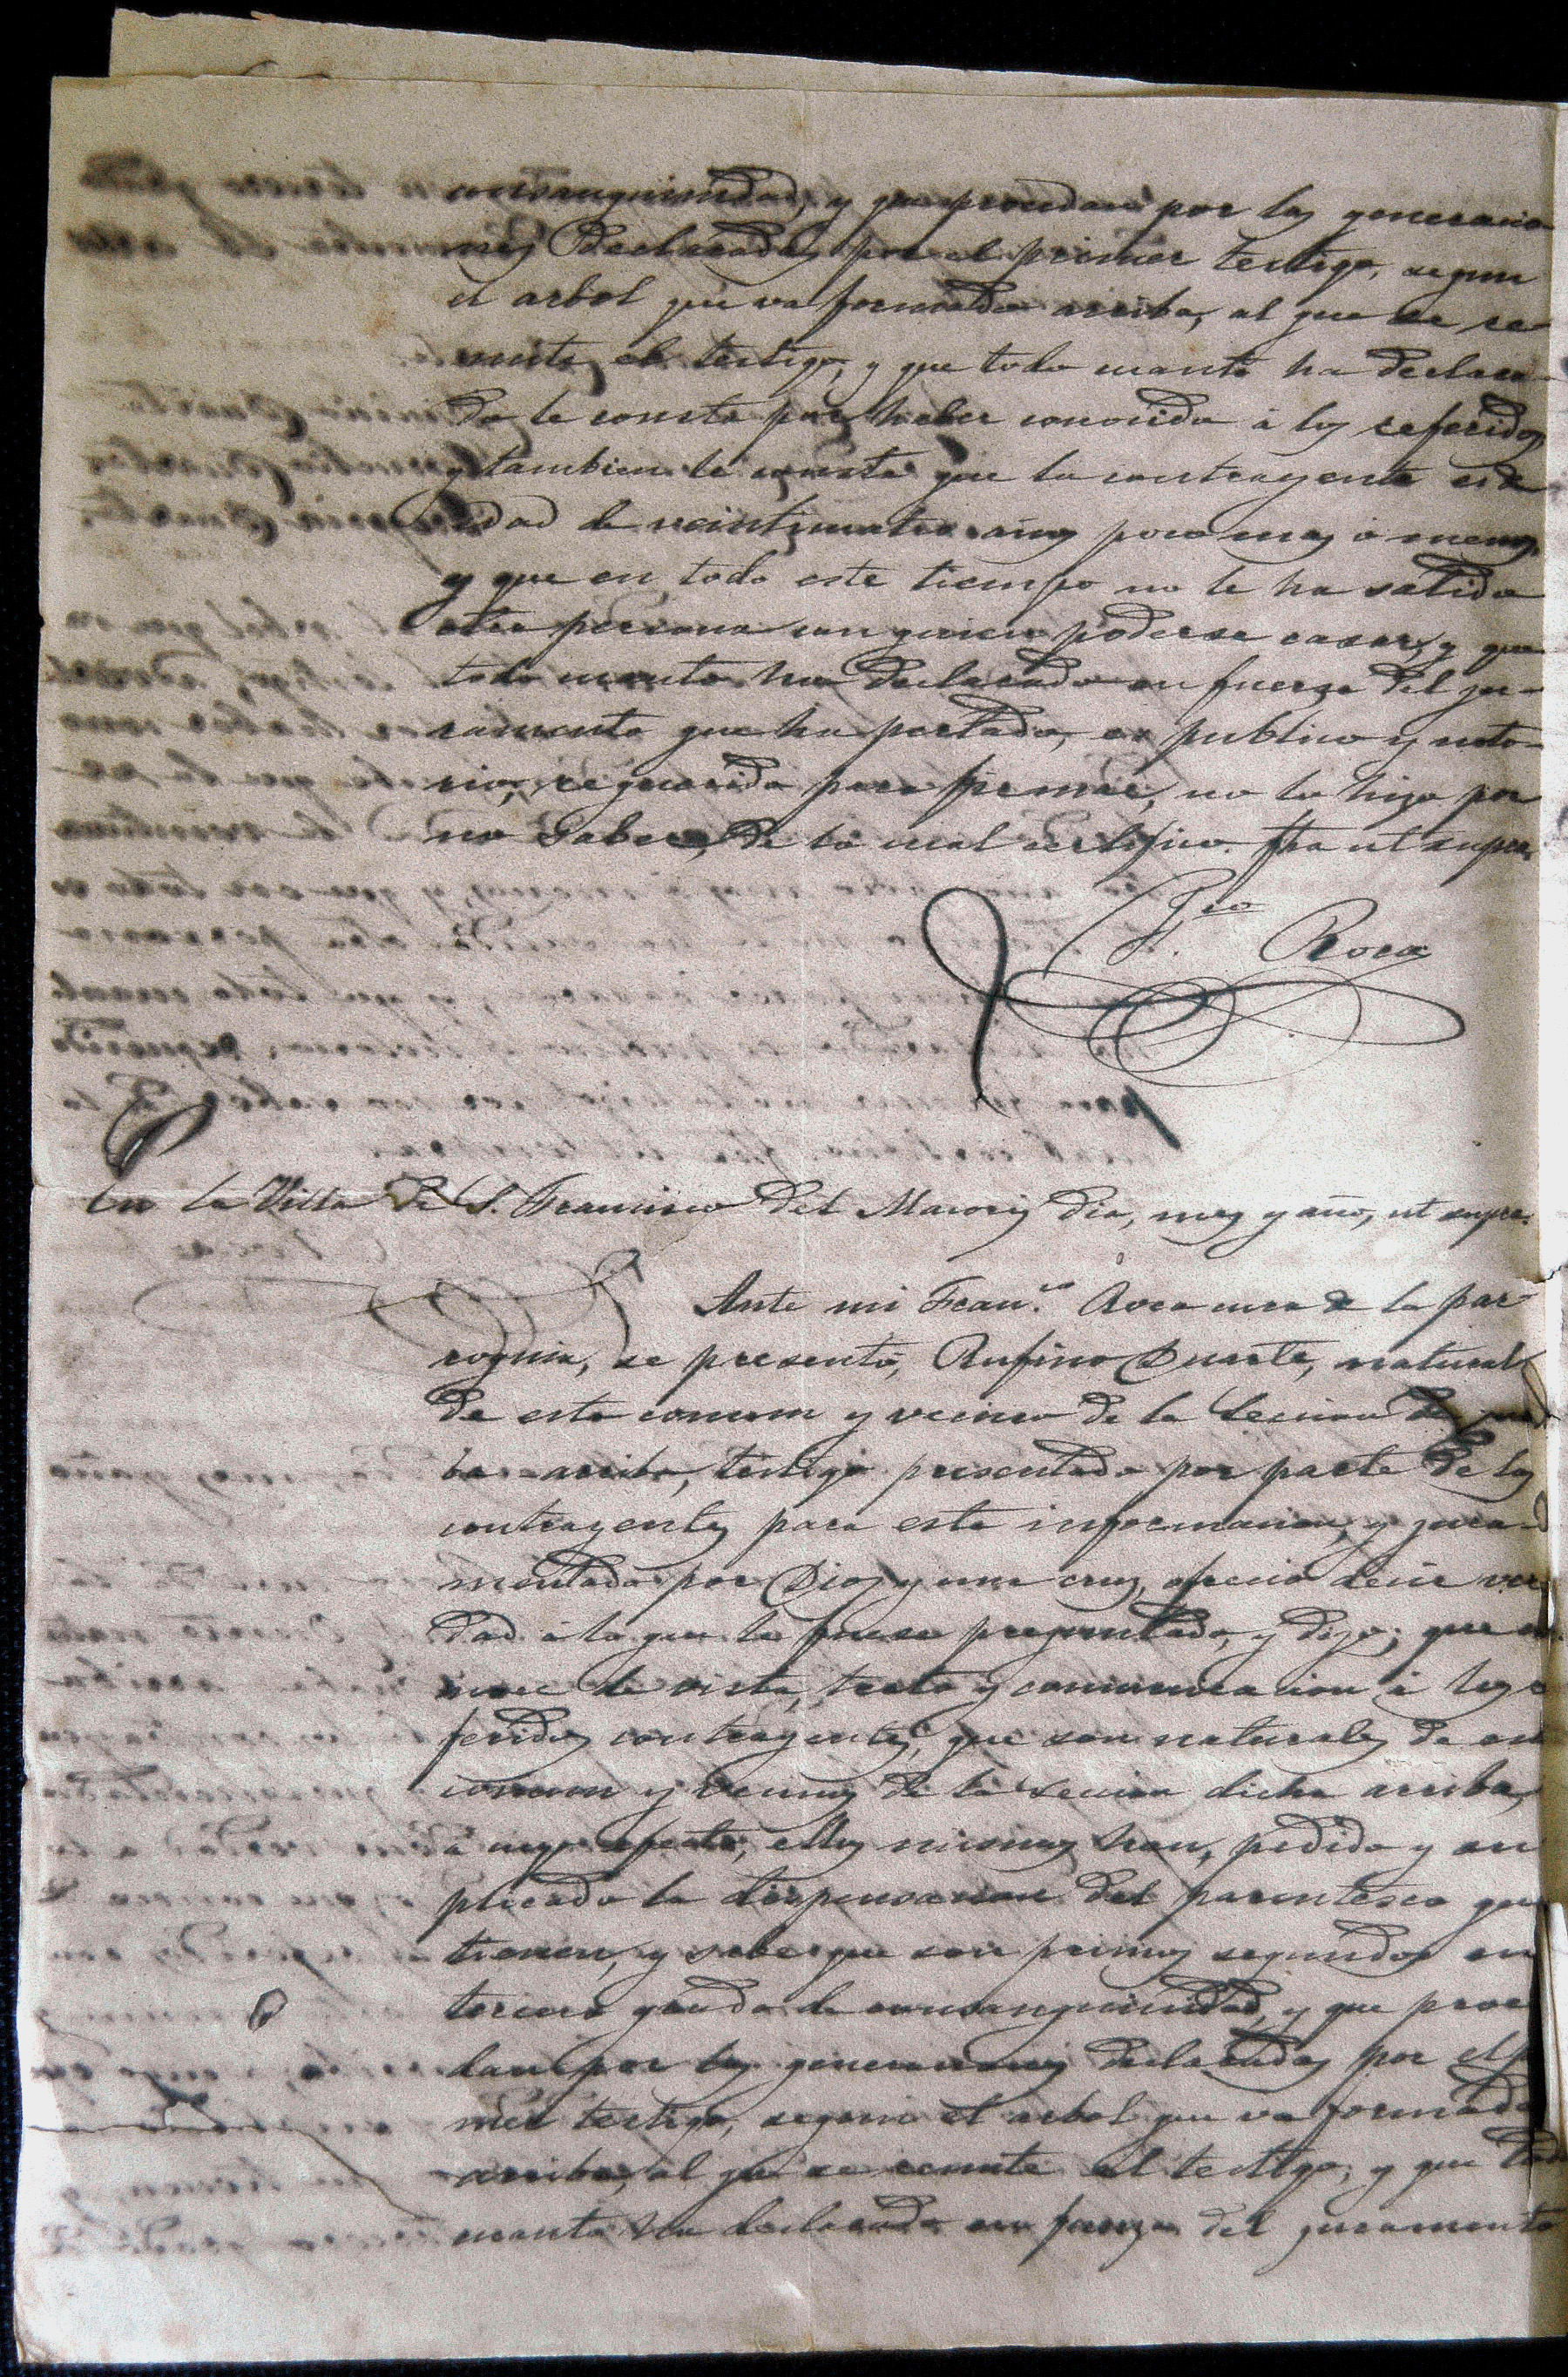 consanguinidad, y que procedan por las generacio
nes declaradas por el primer testigo, segun
el arbol que va formado arriba, al que se re-
mite el testigo, y que todo cuanto ha declara-
do le consta por haber conocido á los referidos
y tambien le consta que la contrayente es de
edad de veinticuatro años poco mas ó menos,
y que en todo este tiempo no le ha salido
otra persona con quien poderse casar, y que
todo cuanto ha declarado en fuerza del ju-
ramento que ha prestado, es publico y noto-
rio, requerido para firmar, no lo hizo por
no saber, de lo cual certifico. fha ut supra.
F. Roca
En la Villa de S. Francisco del Macoris dia, mes y año, ut supra.
Ante mi Fran.co Roca cura de la par-
roquia, se presentó, Rufino Duarte, natural
de esta comun y vecino de la Seccion de
ba-arriba, testigo presentado por parte de los
contrayentes para esta informacion, y jura-
mentado por Dios y una cruz, ofrecio decir ver
dad á lo que le fuese preguntado, y dijo; que co
noce de vista, trato y comunicacion á los re
feridos contrayentes, que son naturales de esta
comun y vecinos de la Seccion dicha arriba,
á cuyo efecto, ellos mismos han, pedido y su
plicado la dispensacion del parentesco que
tienen, y sabe que son primos segundos en
tercer grado de consanguinidad, y que proce
dan por las generaciones declaradas por el pri
mer testigo, segun el arbol que va formado
arriba, al que se remite el testigo, y que todo
cuanto ha declarado en fuerza del juramento